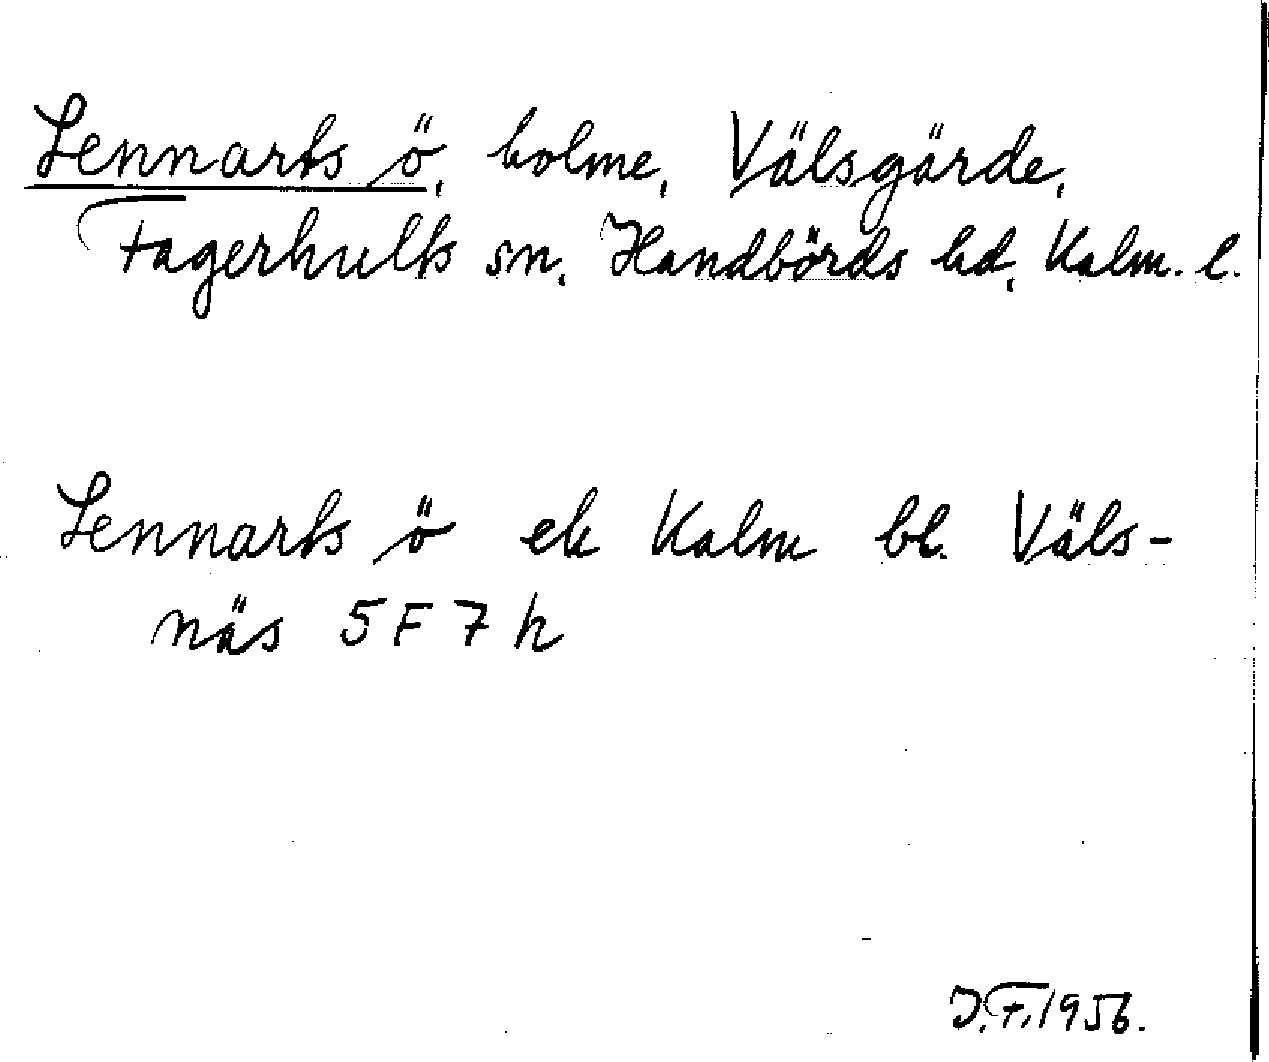 Lennarts ö, holme, Välsgärde,
Fagerhults sn, Handbörds hd, Kalm. l.
Lennarts ö ek Kalm bl. Väls-
näs 5F 7h
J.F. 1956.